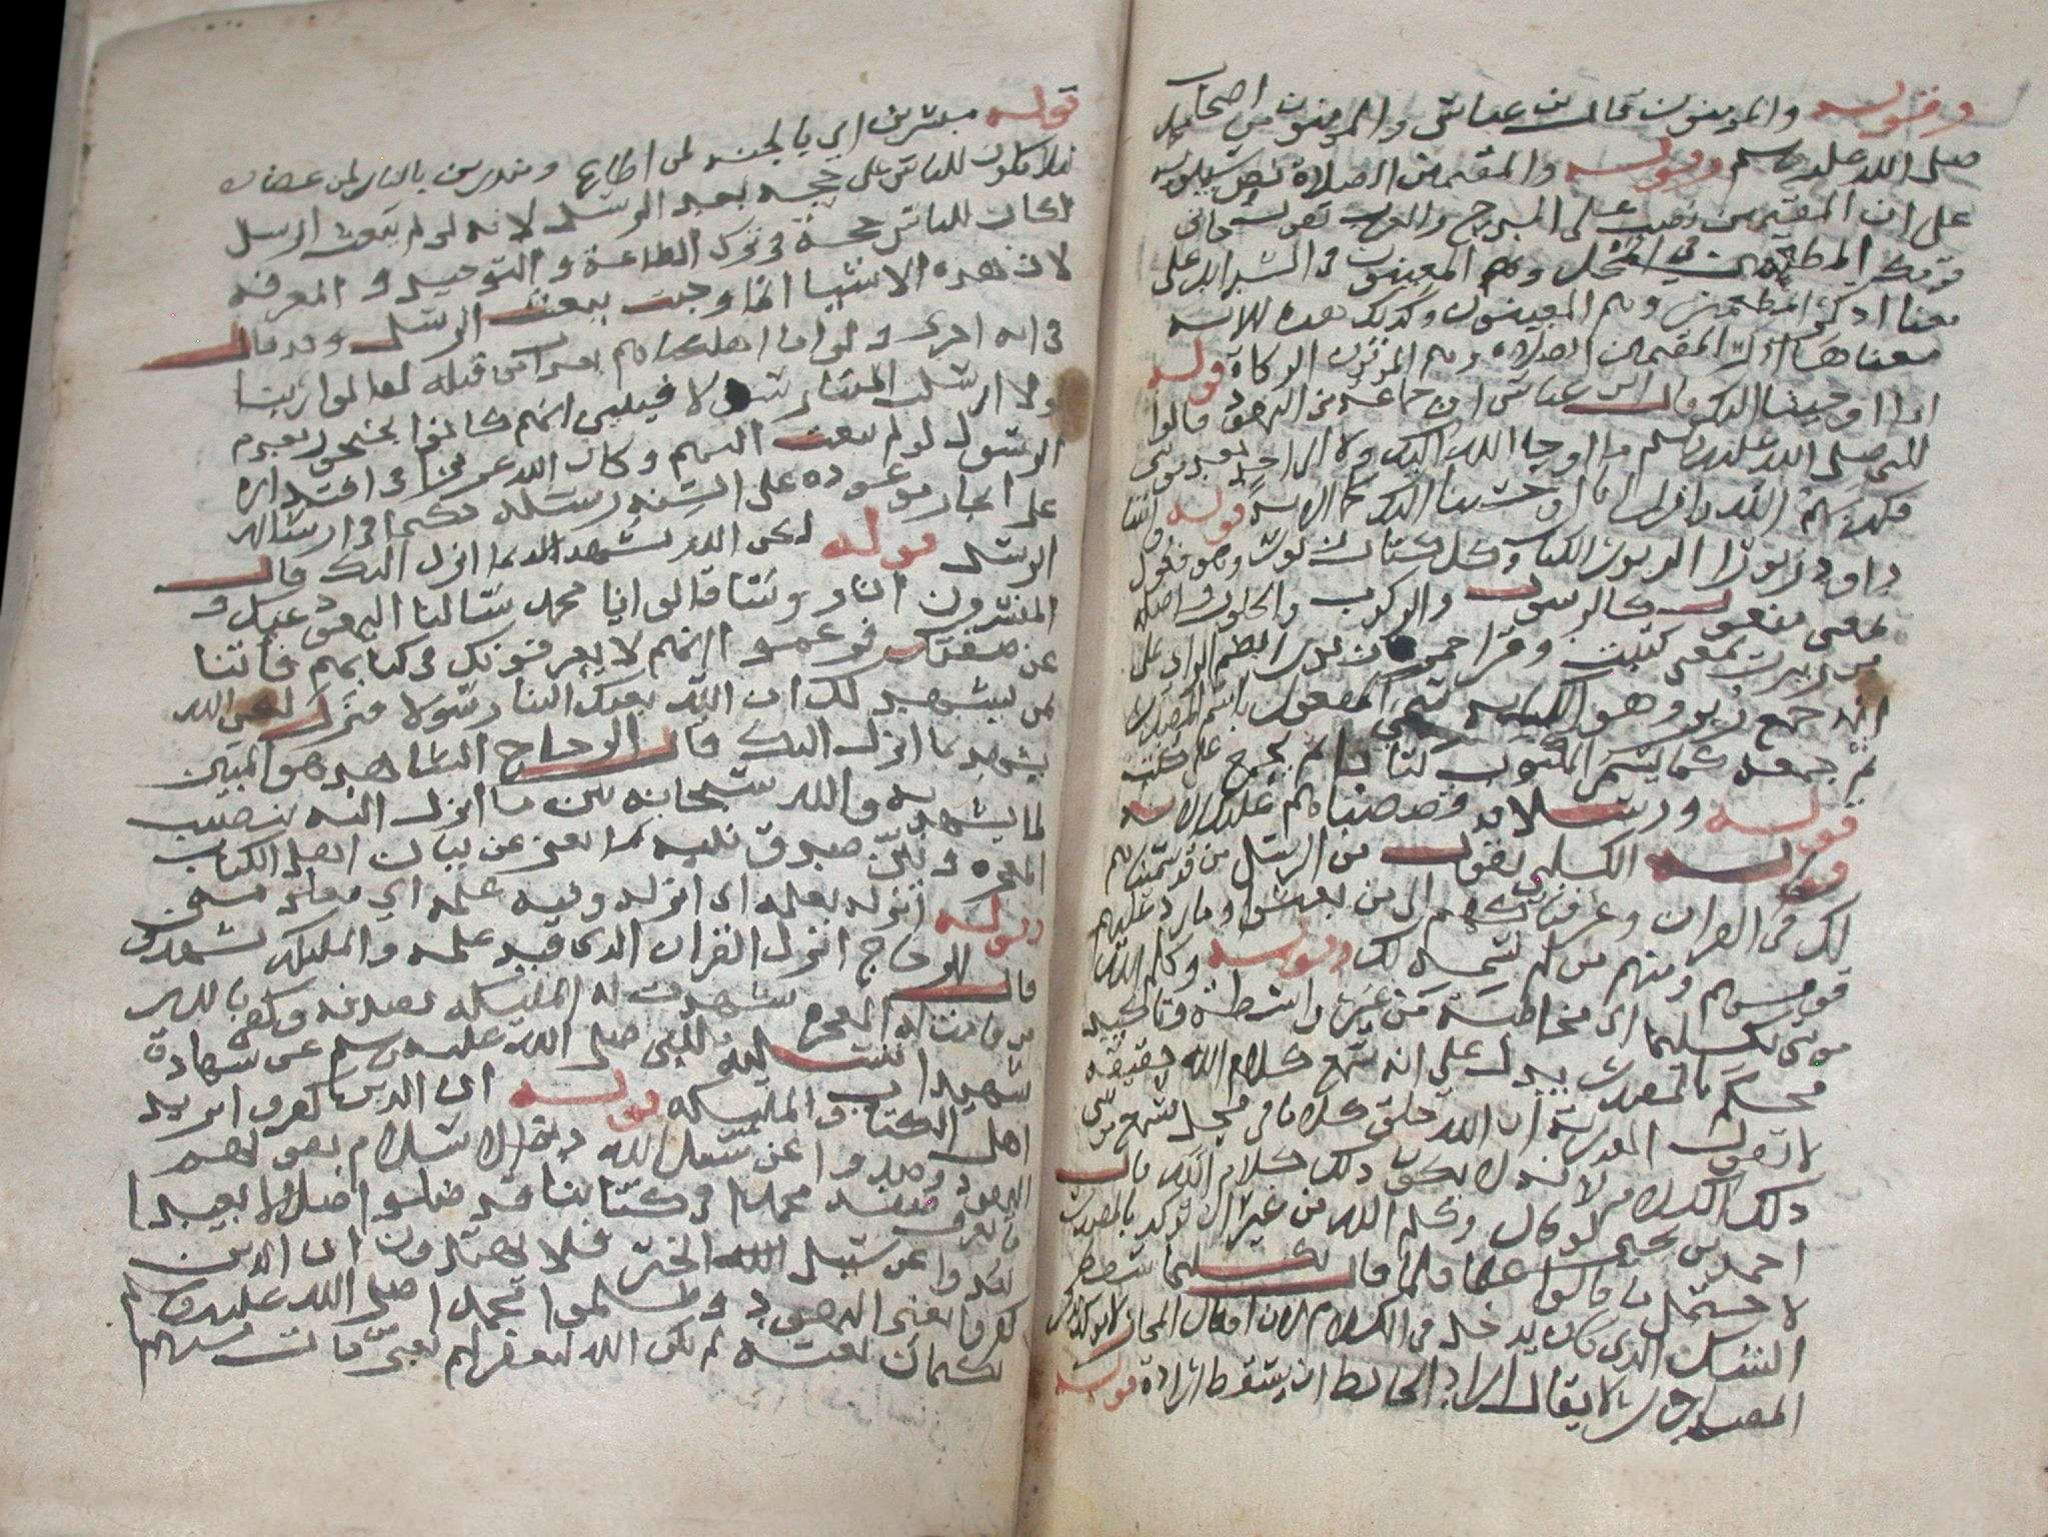 وقوله والمومنون قال بن عباس والمومنون من اصحاب محمد
صلى الله عليه وسلم وقوله والمقيمين الصلاة نص سيبويه
على ان المقيمين نصب على المدح والعرب تقول جاني
قومك المطعمين في المحل وهم المعينون في الشدايد على
معنا اذكر المطعمين وهم المعينون وكذلك هذه الايه
معناها اذكر المقيمين الصلاه وهم الموتون الزكاة قوله
انا اوحينا اليك قال ابن عباس ان جماعه من اليهود قالوا
للنبي صلى الله عليه وسلم ما اوحا الله اليك ولا الى احد بعد موسى
فكذبهم الله وانزل انا اوحينا اليك الايه قوله واتينا
داوود زبورا الزبور الكتاب وكل كتاب زبور وهو فعول
بمعنى مفعول كالرسول والركوب والحلوب واصله
من زبرت بمعنى كتبت وقرا حمزه زبورا بضم الزاي على
انه جمع زبر وهو الكتابه سمي المفعول باسم المصدر
ثم جمعه كما يسمى المكتوب كتابا ثم يجمع على كتب
قوله ورسلا قد قصصناهم عليك الايه
قال الكلبي يقول من الرسل من قد سميناهم
لك في القران وعرفناكهم الى من بعثوا وما رد عليهم
قومهم ومنهم من لم نسمه لك وقوله وكلم الله
موسى تكليما اي مخاطبة من غير واسطة وتاكيد
كلم بالمصدر يدل على انه سمع كلام الله حقيقه
لا كما تقول القدرية ان الله خلق كلاما في محل فسمع موسى
ذلك الكلام لانه لا يكون ذلك كلام الله قال
احمد بن يحيى لو كان وكلم الله من غير ان يوكد بالمصدر
لاحتمل ما قالوا فلما قال تكليما سقط
الشك الذي كان يدخل في الكلام لان افعال المجاز لا توكد بذكر
المصادر لا يقال اراد الحايط ان يسقط ارادة قوله
قوله مبشرين اي بالجنه لمن اطاع ومنذرين بالنار لمن عصاه
ليلا يكون للناس على حجه بعد الرسل لانه لو لم يبعث الرسل
لكان للناس حجة في ترك الطاعة والتوحيد والمعرفه
لان هذه الاشيا انما وجبت ببعث الرسل وقد قال
في ايه اخرى ولو انا اهلكناهم بعذاب من قبله لقالوا ربنا
لولا ارسلت الينا رسولا فيبين انهم كانوا يحتجون بعدم
الرسول لو لم يبعث اليهم وكان الله عزيزا في اقتداره
على انجاز موعوده على السنه رسله حكيما في ارساله
الرسل قوله لكن الله يشهد بما انزل اليك قال
المفسرون ان روسا قالوا يا محمد سالنا اليهود عنك و
عن صفتك فزعموا انهم لا يعرفونك في كتابهم فاتنا
بمن يشهد لك ان الله بعثك الينا رسولا فنزل لكن الله
يشهد بما انزل اليك قال الزجاج الشاهد هو المبين
لما يشهد به والله سبحانه بين ما انزل اليه بنصب
المعجزه وبين صدق نبيه بما يغني عن بيان اهل الكتاب
وقوله انزله بعلمه اي انزله وفيه علمه اي معلومه
قال الزجاج انزل القران الذي فيه علمه والمليكه يشهدون
من قامت له المعجزه شهدت له المليكه بصدقه وكفى بالله
شهيدا فتسليه للنبي صلى الله عليه وسلم عن شهادة
اهل الكتاب والمليكه قوله ان الذين كفروا يريد
اليهود وصدوا عن سبيل الله دين الاسلام بقولهم
ما نعرف صفه محمد في كتابنا قد ضلوا ضلالا بعيدا
بعدوا عن سبيل الله الخير فلا يهتدون ان الذين
كفروا يعني اليهود وظلموا محمدا صلى الله عليه وسلم
بكتمان نعته لم يكن الله ليغفر لهم يعني من مات منهم